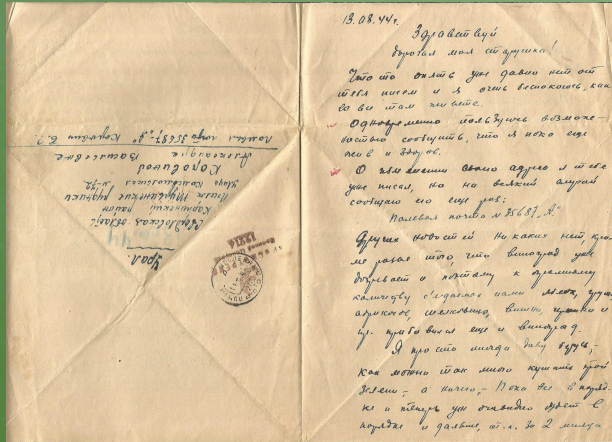 13.08.44 г.
Здравствуй
дорогая моя старушка!
Что то опять уже давно нет от
тебя писем и я очень беспокоюсь, как
вы там живете.
Одновременно пользуюсь возможно-
стью сообщить, что я пока еще
жив и здоров.
О свой адрес я тебе
уже писал, но на всякий случай
сообщаю его еще раз:
Полевая почта № 35687 "А"
Других новостей никаких нет, кро-
ме разве того, что виноград уже
дозревает и поэтому к
количеству нами яблок, груш,
абрикосов, шелковицы, вишни, и
др. прибавился еще и виноград.
Я просто иногда диву даюсь,
как можно так много кушать этой
зелени, – а ничего, – Пока все в поряд-
ке и теперь уже очевидно будет в
порядке и дальше, т.к. за 2 месяца
Урал.
Свердловская область
район
Коровиной
Александре Васильевне
Полевая почта 35687-"А"